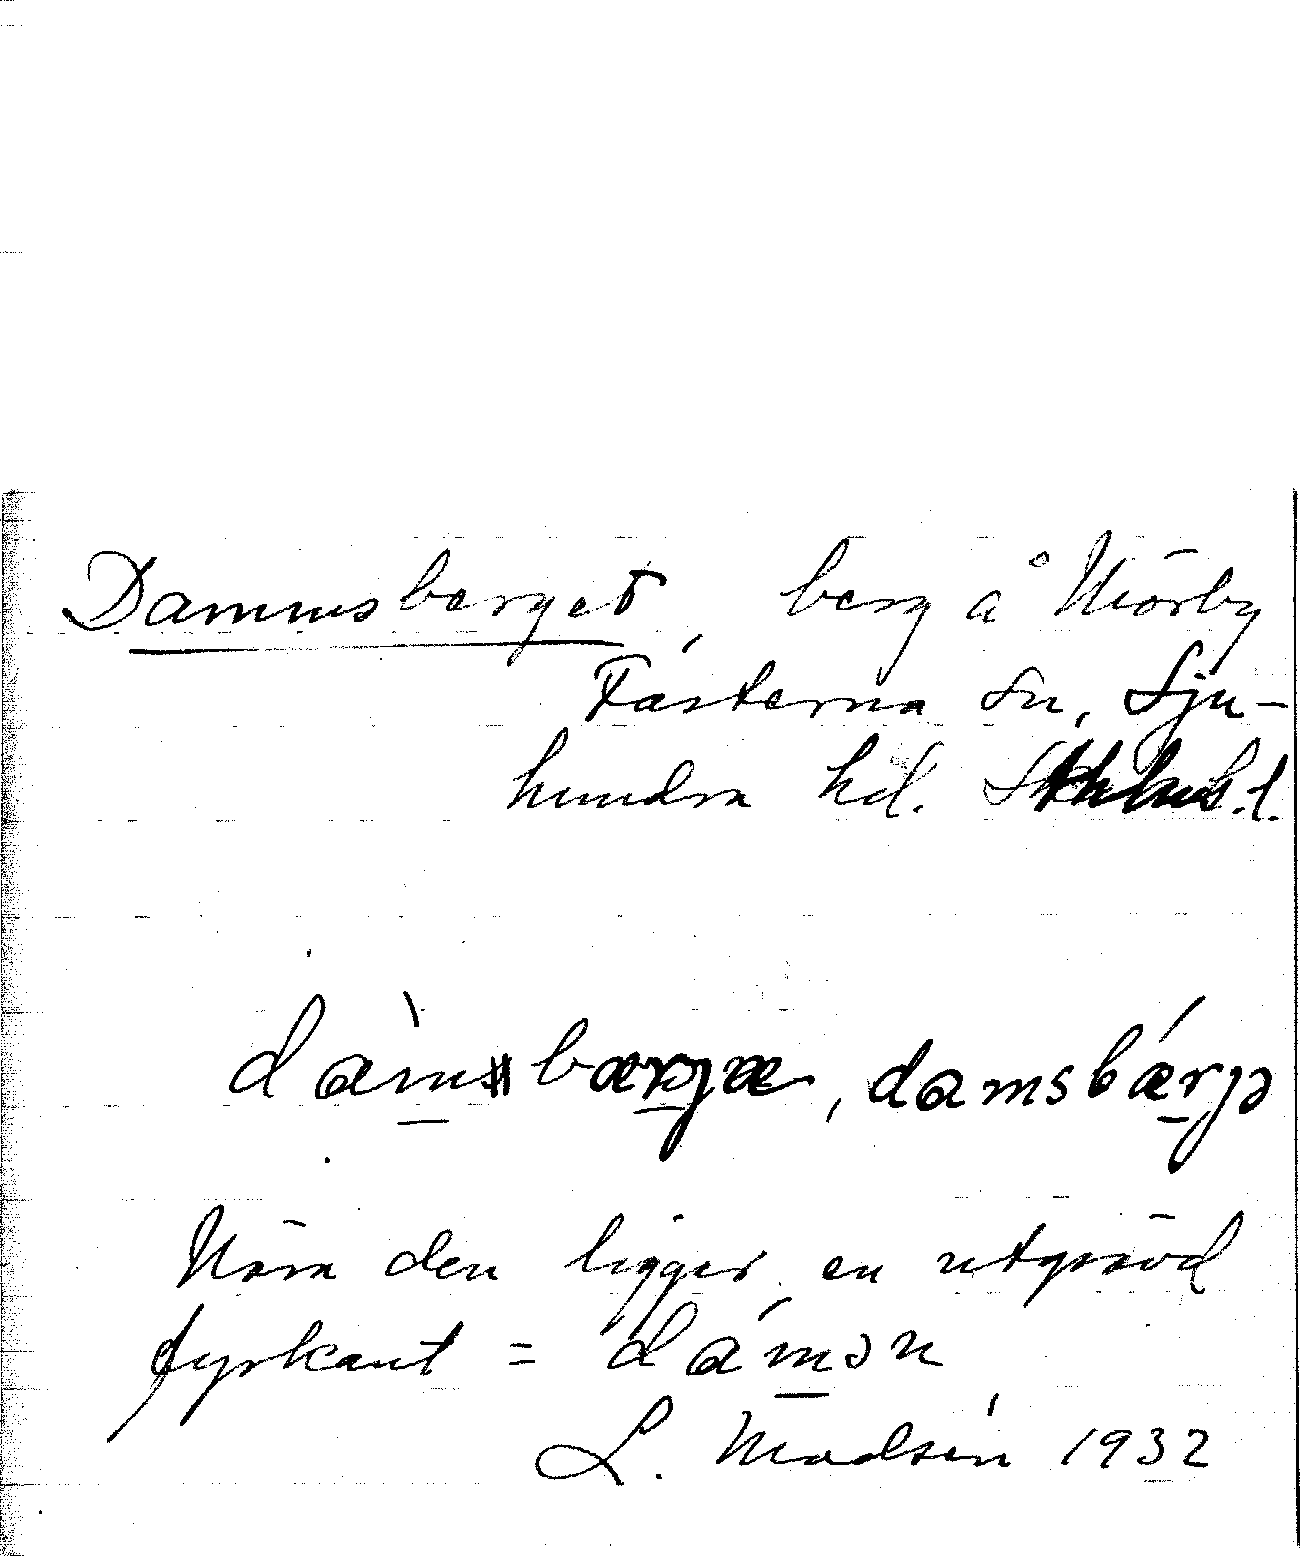 Dammsberget, berg å Mörby
Fasterna sn, Sju-
hundra hd. Sthlms l.
dàmsbærjæ, damsbǽrjə
Nära den ligger en utgrävd
fyrkant = dámən
L. Modsén 1932